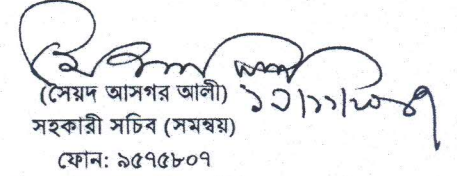 (সৈয়দ আসগর আলী)
সহকারী সচিব (সমন্বয়)
ফোন: ৯৫৭৫৮০৭